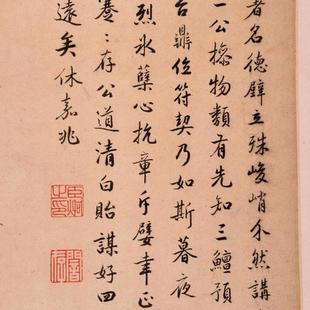 者名德壁立殊峻峭介然講
一公物類有先知三鱣預
台鼎位符契乃如斯暮夜
烈氷蘖心抗章斥嬖幸正
蹇〻存公道清白貽謀好四
遠矣休嘉兆